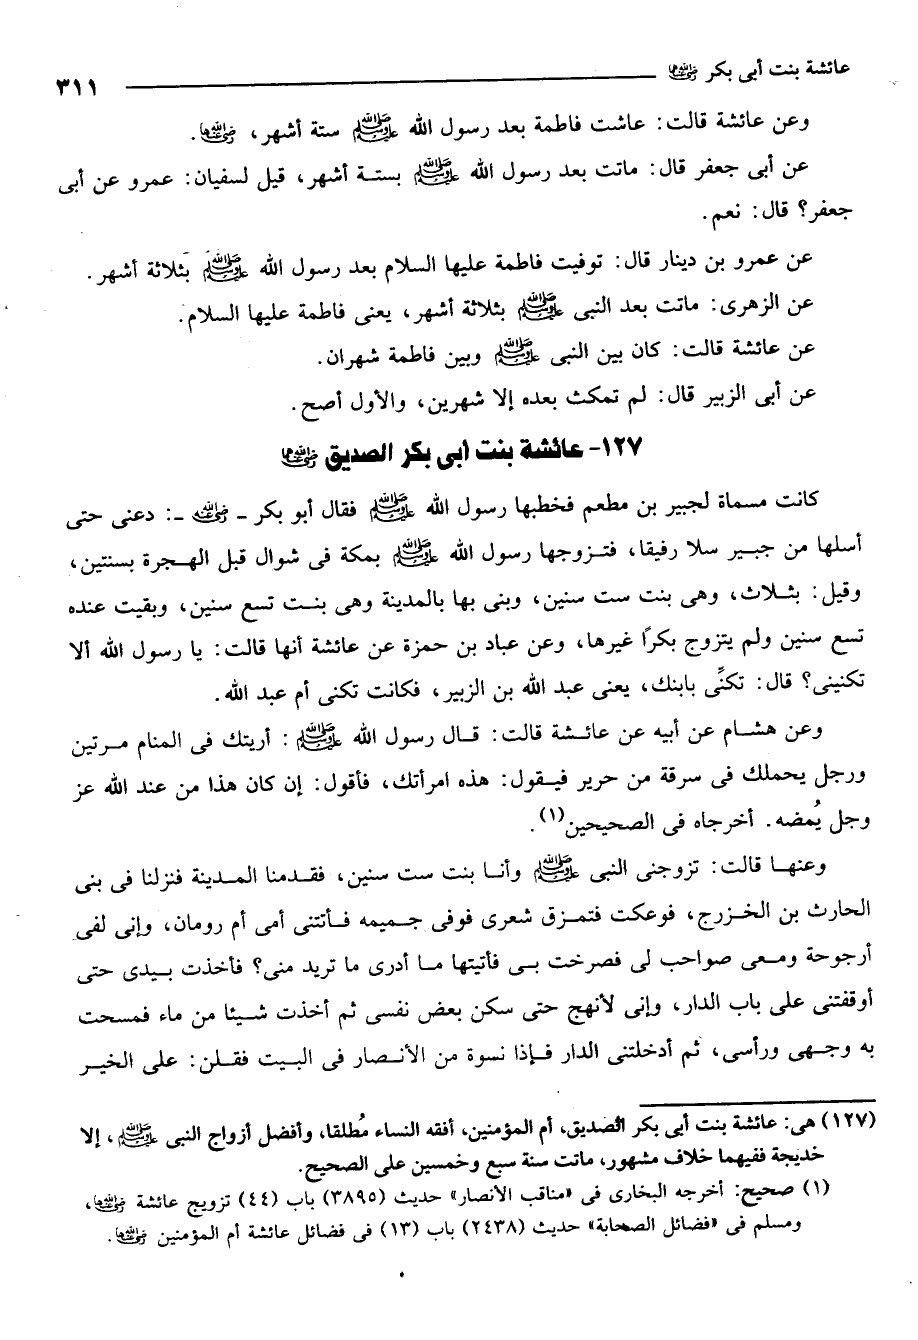 عائشة بنت أبى بكر رضي الله عنهما ٣١١
وعن عائشة قالت: عاشت فاطمة بعد رسول الله ﷺ ستة أشهر، رضي الله عنها.
عن أبى جعفر قال: ماتت بعد رسول الله ﷺ بستة أشهر، قيل لسفيان: عمرو عن أبى
جعفر؟ قال: نعم.
عن عمرو بن دينار قال: توفيت فاطمة عليها السلام بعد رسول الله ﷺ بثلاثة أشهر.
عن الزهرى: ماتت بعد النبى ﷺ بثلاثة أشهر، يعنى فاطمة عليها السلام.
عن عائشة قالت: كان بين النبى ﷺ وبين فاطمة شهران.
عن أبى الزبير قال: لم تمكث بعده إلا شهرين، والأول أصح.
١٢٧- عائشة بنت ابى بكر الصديق رضي الله عنهما
كانت مسماة لجبير بن مطعم فخطبها رسول الله ﷺ فقال أبو بكر ـ رضي الله عنه ـ: دعنى حتى
أسلها من جبير سلا رفيقا، فتـزوجها رسول الله ﷺ بمكة فى شوال قبل الهـجرة بسنتين،
وقيل: بثـلاث، وهى بنت ست سنين، وبنى بها بالمدينة وهى بنـت تسع سنين، وبقيت عنده
تسع سنين ولم يتزوج بكرًا غيرها، وعن عباد بن حمزة عن عائشة أنها قالت: يا رسول الله ألا
تكنينى؟ قال: تكنِّى بابنك، يعنى عبد الله بن الزبير، فكانت تكنى أم عبد الله.
وعن هشـام عن أبيه عن عائـشة قالت: قـال رسول الله ﷺ: أريتك فى المنام مـرتين
ورجل يحملك فى سرقة من حرير فيـقول: هذه امرأتك، فأقول: إن كان هذا من عند الله عز
وجل يُمضه. أخرجاه فى الصحيحين(١).
وعنهـا قالت: تزوجنى النبى ﷺ وأنـا بنت ست سنين، فقـدمنا المـدينة فنزلنا فى بنى
الحارث بن الخـزرج، فوعكت فتمـزق شعرى فوفى جـميمه فـأتتنى أمى أم رومان، وإنى لفى
أرجوحة ومـعى صواحب لى فصرخت بـى فأتيتها مـا أدرى ما تريد منى؟ فأخذت بـيدى حتى
أوقفتنى على باب الدار، وإنى لأنهج حتى سكن بعض نفسى ثم أخذت شـيئا من ماء فمسحت
به وجـهى ورأسى، ثم أدخلتنى الدار فـإذا نسوة من الأنـصار فى البـيت فقـلن: على الخيـر
(١٢٧) هى: عائشة بنت أبى بكر الصديق، أم المؤمنين، أفقه النساء مُطلقا، وأفضل أزواج النبى ﷺ، إلا
خديجة ففيهما خلاف مشهور، ماتت سنة سبع وخمسين على الصحيح.
(١) صحيح: أخرجه البخارى فى «مناقب الأنصار» حديث (٣٨٩٥) باب (٤٤) تزويج عائشة رضي الله عنها،
ومسلم فى «فضائل الصحابة» حديث (٢٤٣٨) باب (١٣) فى فضائل عائشة أم المؤمنين رضي الله عنها.